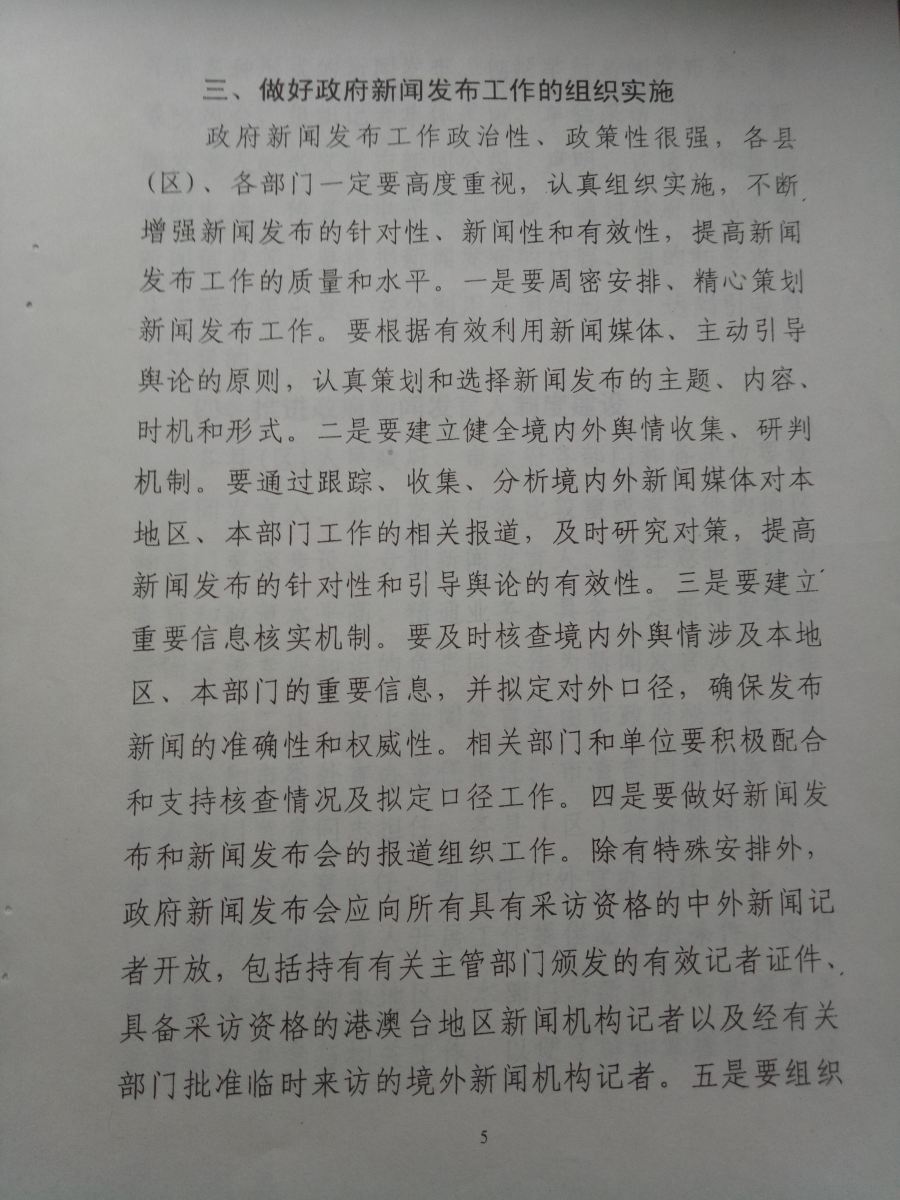 三、做好政府新闻发布工作的组织实施
政府新闻发布工作政治性、政策性很强，各县
（区）、各部门一定要高度重视，认真组织实施，不断
增强新闻发布的针对性、新闻性和有效性，提高新闻
发布工作的质量和水平。一是要周密安排、精心策划
新闻发布工作。要根据有效利用新闻媒体、主动引导
舆论的原则，认真策划和选择新闻发布的主题、内容、
时机和形式。二是要建立健全境内外舆情收集、研判
机制。要通过跟踪、收集、分析境内外新闻媒体对本
地区、本部门工作的相关报道，及时研究对策，提高
新闻发布的针对性和引导舆论的有效性。三是要建立
重要信息核实机制。要及时核查境内外舆情涉及本地
区、本部门的重要信息，并拟定对外口径，确保发布
新闻的准确性和权威性。相关部门和单位要积极配合
和支持核查情况及拟定口径工作。四是要做好新闻发
布和新闻发布会的报道组织工作。除有特殊安排外，
政府新闻发布会应向所有具有采访资格的中外新闻记
者开放，包括持有有关主管部门颁发的有效记者证件、
具备采访资格的港澳台地区新闻机构记者以及经有关
部门批准临时来访的境外新闻机构记者。五是要组织
5